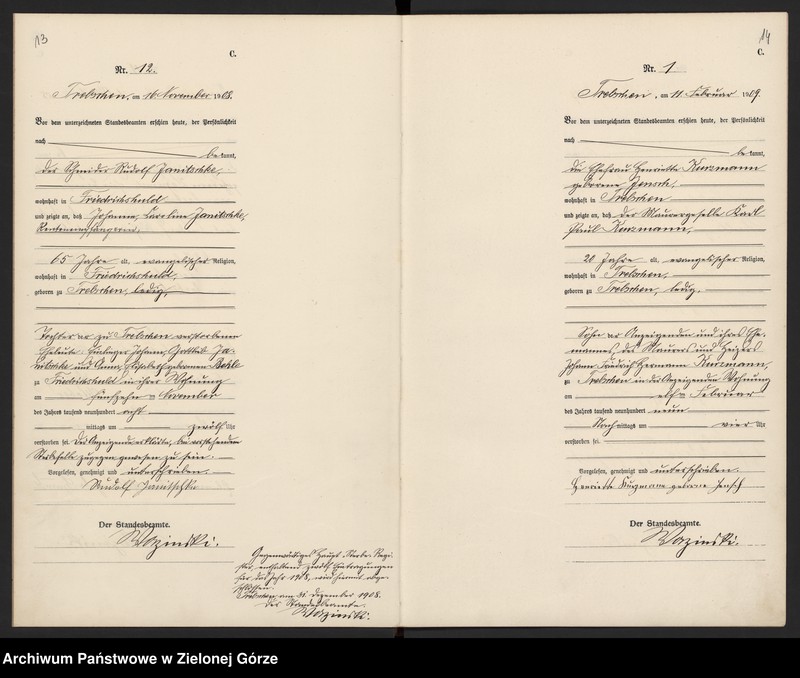 13
C.
Nr. 12.
Trebschen, am 16 November 1908.
Vor dem unterzeichneten Standesbeamten erschien heute, der Persönlichkeit
nach
bekannt,
der Schneider Rudolf Janitschke,
wohnhaft in Friedrichshuld
und zeigte an, daß Johanna, Caroline Janitschke,
Rentenempfängerin,
65 Jahre alt, evangelischer Religion,
wohnhaft in Friedrichshuld,
geboren zu Trebschen, ledig,
Tochter der zu Trebschen verstorbenen
Eheleute Johann, Gottlieb Ja-
nitschke und Anna, Elisabeth geborenen
zu Friedrichshuld in ihrer Wohnung
am fünfzehn November
des Jahres tausend neunhundert acht
mittags um zwölf Uhr
verstorben sei. Der Anzeigende erklärte, bei vorstehendem
Sterbefalle zugegen gewesen zu sein.
Vorgelesen, genehmigt und unterschrieben.
Rudolf Janitschke
Der Standesbeamte.
Wozinski.
Gegenwärtiges Haupt-Sterbe-Regi-
ster, enthaltend zwölf Eintragungen
für das Jahr 1908, wird hiermit abge-
schlossen.
Trebschen, am 31. Dezember 1908.
Der Standesbeamte.
Wozinski.
14
C.
Nr. 1
Trebschen, am 11. Februar 1909.
Vor dem unterzeichneten Standesbeamten erschien heute, der Persönlichkeit
nach
bekannt,
die Ehefrau Henriette Kurzmann
geborene Jensch,
wohnhaft in Trebschen
und zeigte an, daß der Maurergeselle Karl
Paul Kurzmann,
20 Jahre alt, evangelischer Religion,
wohnhaft in Trebschen,
geboren zu Trebschen, ledig,
Sohn der Anzeigenden und ihres Ehe-
mannes, des Maurers und Heizers
Johann Friedrich Hermann Kurzmann,
zu Trebschen in der Anzeigenden Wohnung
am elf Februar
des Jahres tausend neunhundert neun
Nachmittags um vier Uhr
verstorben sei.
Vorgelesen, genehmigt und unterschrieben.
Henriette Kurzmann geborene Jensch
Der Standesbeamte.
Wozinski.
Archiwum Państwowe w Zielonej Górze